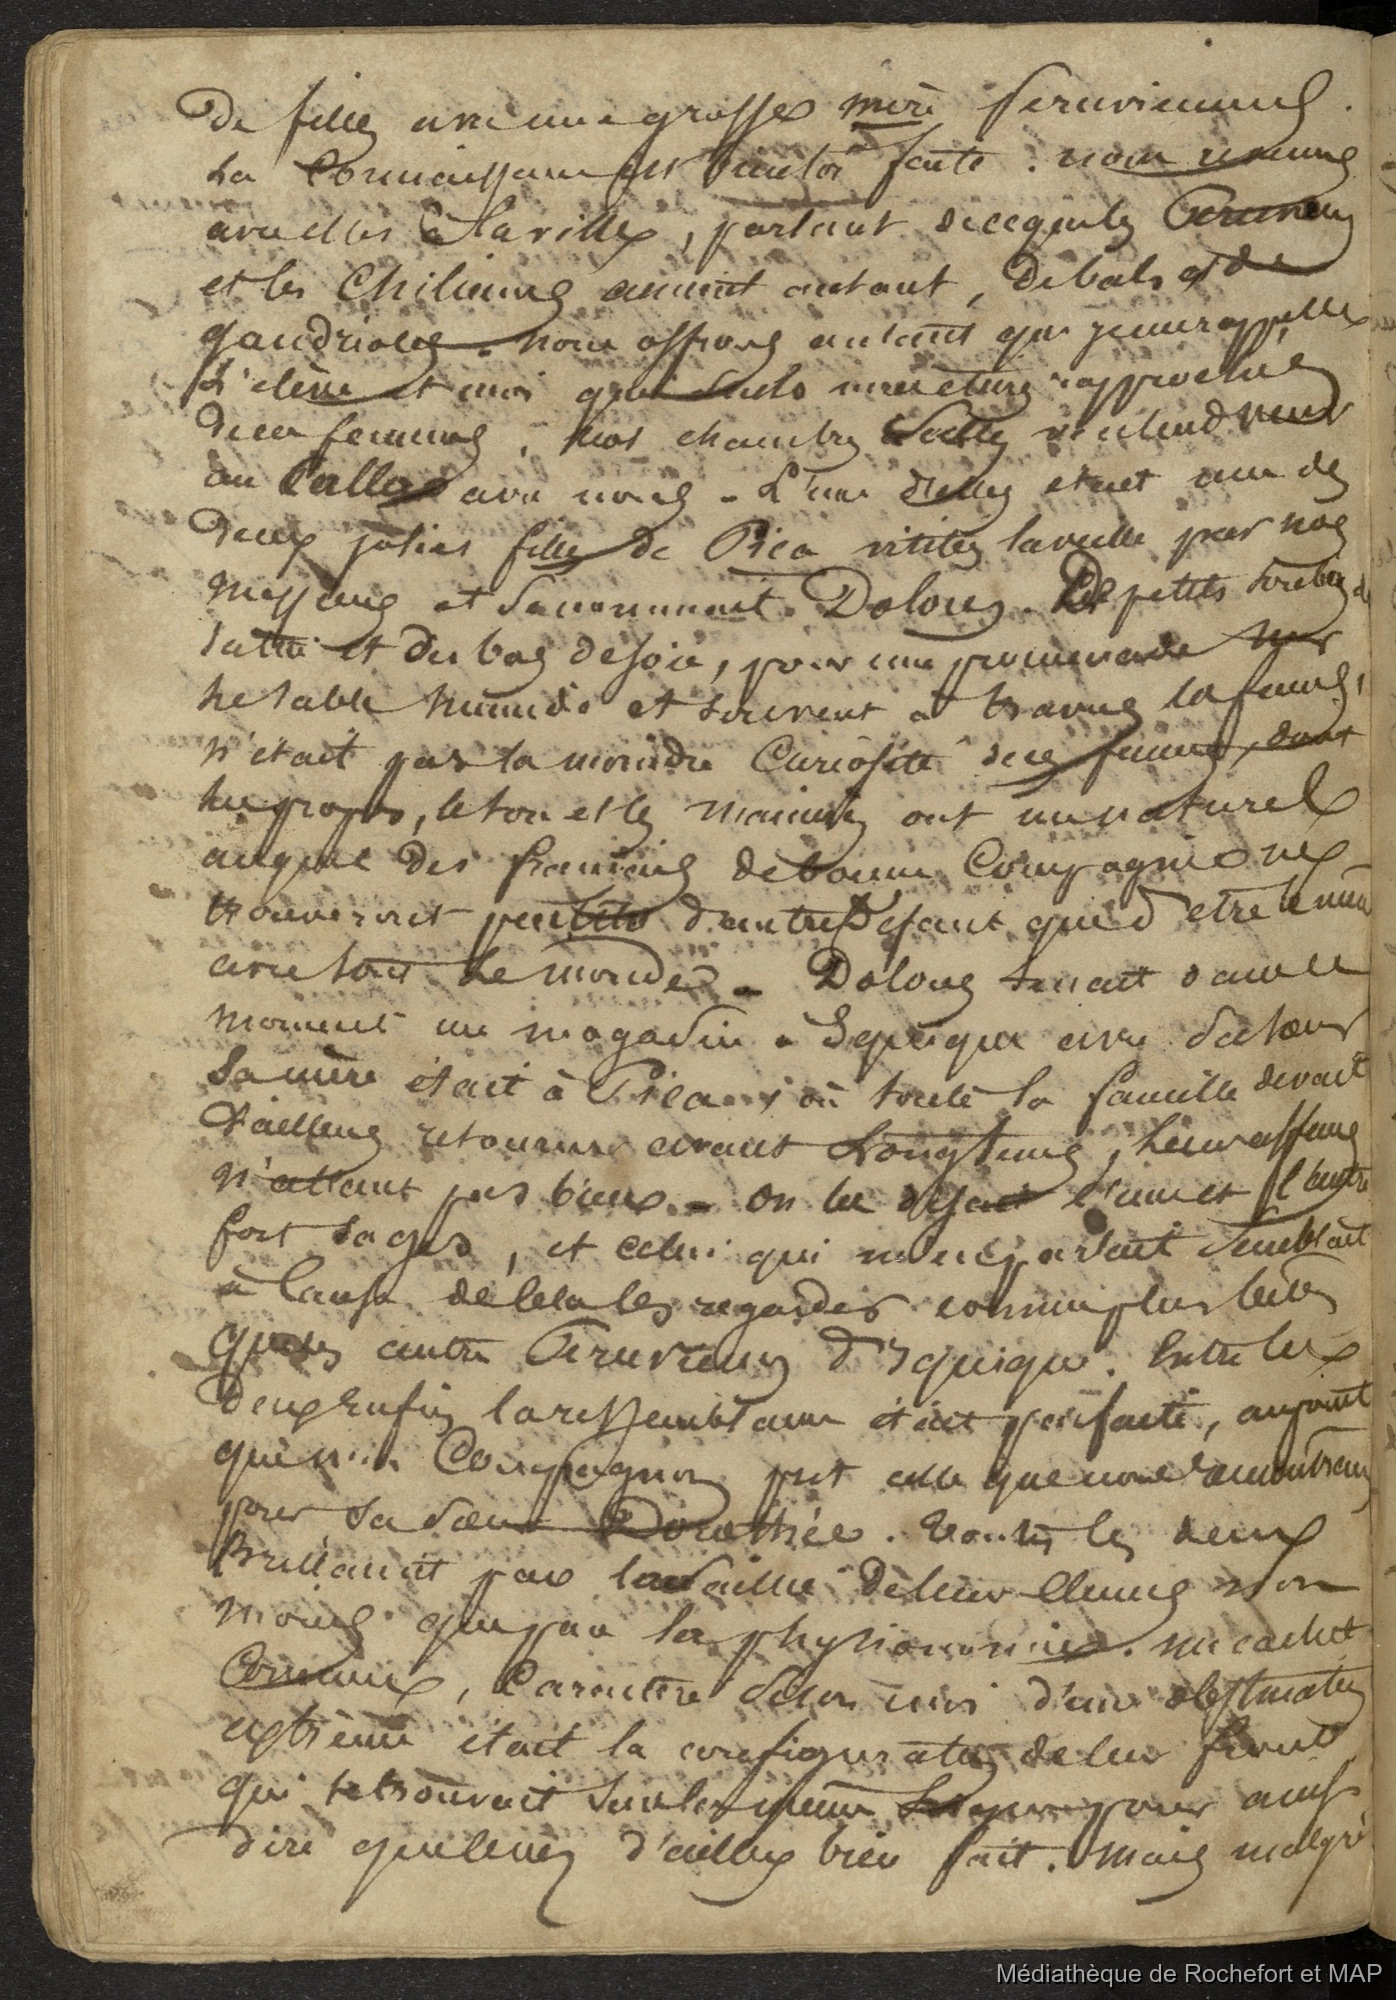 de filles avec une grosse mère Peruvienne.
La Connaissance est bientôt faite. nous revenons
avec elles à la ville, parlant de ce que les Peruviens
et les Chiliennes aiment autant, de bals et de
gaudrioles. nous offrons autant que je me rappelle
L'élève et moi qui seuls nous étions rapprochés
de ces femmes, nos chambres si elles veulent venir
au Callao avec nous - L'une d'elles était une des
deux jolies filles de Pica visitées la veille par nos
Messieurs et se nommait Dolores. De petits souliers de
satin et des bas de soie, pour une promenade sur
le sable humide et souvent à travers la fange,
n'était pas la moindre Curiosité de ces femmes, dont
les propos, le ton et les manières ont un naturel
auquel des français de bonne Compagnie ne
trouveront peut-être d'autre défaut que d'être le même
avec tout le monde. - Dolores tenait dans ce
moment un magasin à Iquique avec sa sœur
Sa mère était à Pica, où toute la famille devait
d'ailleurs retourner avant Longtems, leurs affaires
n'allant pas bien. - On les disait l'une et l'autre
fort sages, et celui qui m'en parlait semblait
à Cause de cela les regarder comme plus bêtes
que les autres Peruviens d'Iquique. Entre les
deux enfin la ressemblance était parfaite, au point
que mon Compagnon prit celle que nous rencontrâmes
pour sa sœur Dorothée. Toutes les deux
Brillaient par la taille de leur
moins que par la physionomie. un cachet
Commun, Caractère selon moi d'une obstination
extrême était la configuration de leur front
qui se trouvait sur la même ligne pour ainsi
dire que le nez d'ailleurs bien fait. Mais malgré
Médiathèque de Rochefort et MAP